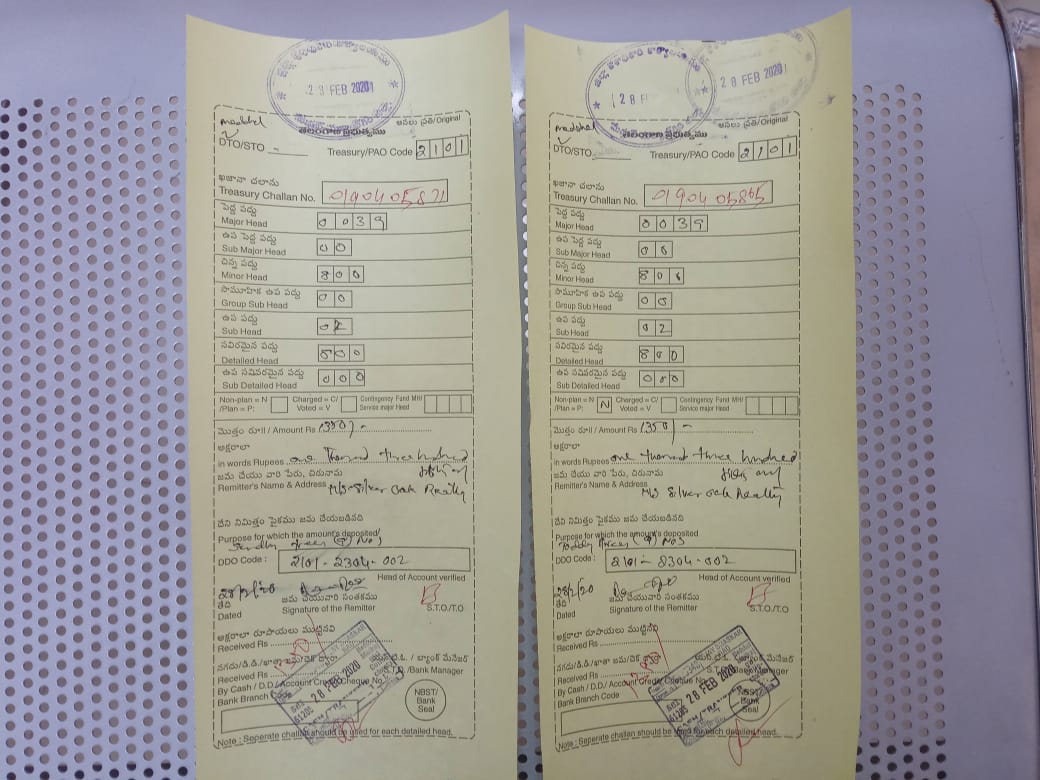 28 FEB 2020
అసలు ప్రతి/Original
తెలంగాణ ప్రభుత్వము
DTO/STO
Treasury/PAO Code 2101
ఖజానా చలాను
Treasury Challan No. 0190405871
పెద్ద పద్దు
Major Head 0039
ఉప పెద్ద పద్దు
Sub Major Head 00
చిన్న పద్దు
Minor Head 800
సామూహిక ఉప పద్దు
Group Sub Head 00
ఉప పద్దు
Sub Head 02
సవివరమైన పద్దు
Detailed Head
ఉప సవివరమైన పద్దు
Sub Detailed Head 000
Non-plan = N /Plan = P: Charged = C/ Voted = V Contingency Fund MH/ Service major Head
మొత్తం రూ॥ / Amount Rs 1350/-
అక్షరాలా
in words Rupees one thousand three hundred
జమ చేయు వారి పేరు, చిరునామ
Remitter's Name & Address M/s Silver Oak Realty
దేని నిమిత్తం పైకము జమ చేయబడినది
Purpose for which the amount's deposited
DDO Code : 2101-2304-002
Head of Account verified
28/2/20
తేది
Dated
జమ చేయువారి సంతకము
Signature of the Remitter
S.T.O/T.O
అక్షరాలా రూపాయలు ముట్టినవి
Received Rs
Received Rs
By Cash / D.D./ Account Credit Cheque No.
Bank Branch Code
/Bank Manager
28 FEB 2020
NBST/
Bank
Seal
Note : Seperate challan should be used for each detailed head.
28 FEB 2020
అసలు ప్రతి/Original
తెలంగాణ ప్రభుత్వము
DTO/STO
Treasury/PAO Code 2101
ఖజానా చలాను
Treasury Challan No. 0190405865
పెద్ద పద్దు
Major Head 0039
ఉప పెద్ద పద్దు
Sub Major Head 00
చిన్న పద్దు
Minor Head 800
సామూహిక ఉప పద్దు
Group Sub Head 00
ఉప పద్దు
Sub Head 02
సవివరమైన పద్దు
Detailed Head 800
ఉప సవివరమైన పద్దు
Sub Detailed Head 000
Non-plan = N /Plan = P: N Charged = C/ Voted = V Contingency Fund MH/ Service major Head
మొత్తం రూ॥ / Amount Rs 1350/-
అక్షరాలా
in words Rupees one thousand three hundred
జమ చేయు వారి పేరు, చిరునామ
Remitter's Name & Address M/s Silver Oak Realty
దేని నిమిత్తం పైకము జమ చేయబడినది
Purpose for which the amount's deposited
DDO Code : 2101-8304-002
Head of Account verified
28/2/20
తేది
Dated
జమ చేయువారి సంతకము
Signature of the Remitter
S.T.O/T.O
అక్షరాలా రూపాయలు ముట్టినవి
Received Rs
Received Rs
By Cash / D.D./ Account Credit
Bank Branch Code
28 FEB 2020
Bank
Seal
Note : Seperate challan should be used for each detailed head.